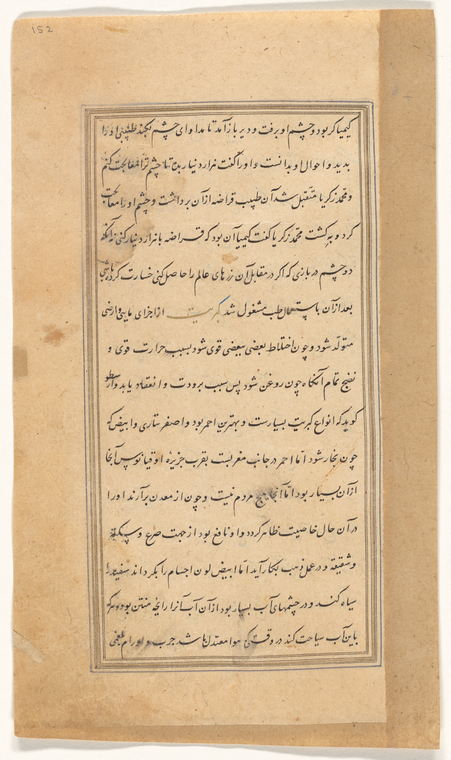 152
کیمیاگر بود و چشم او برفت و دیر باز آمد تا مداوای چشم بکند طبیبی او را
بدید و احوال او بدانست و او را گفت هزار دینار بده تا چشم ترا معالجت کنم
و محمد زکریا متقبل شد آن طبیب قراضه از آن برداشت و چشم او را معالجت
کرد و برگشت محمد زکریا گفت کیمیا آن بود که قراضه با هزار دینار کنی نه آنکه
دو چشم در بازی که اگر در مقابل آن زرهای عالم را حاصل کنی خسارت کرده باشی
بعد از آن باستعمال طب مشغول شد کبریت از اجزای مایی و ارضی
متولد شود و چون اختلاط بعضی ببعضی قوی شود بسبب حرارت قوی و
نضج تمام آنگاه چون روغن شود پس سبب برودت و انعقاد یابد و ارسطو
کوید که انواع کبریت بسیارست و بهترین احمر بود و اصفر ناری و ابیض که
چون بخار شود اما احمر در جانب مغربست بقرب جزیره اوقیانوس آنجا
از آن بسیار بود اما آنجا هیچ مردم نیست و چون از معدن برآرند او را
در آن حال خاصیت ظاهر گردد و او نافع بود از جهت صرع و سکته
و شقیقه و در عمل ذهب بکار آید اما ابیض لون اجسام را بگرداند سفید را
سیاه کند و در چشمهای آب بسیار بود از آن آب آنرا رایحه منتن بود و هرکه
باین آب سباحت کند در وقتی که هوا معتدل باشد جرب و اورام بلغمی